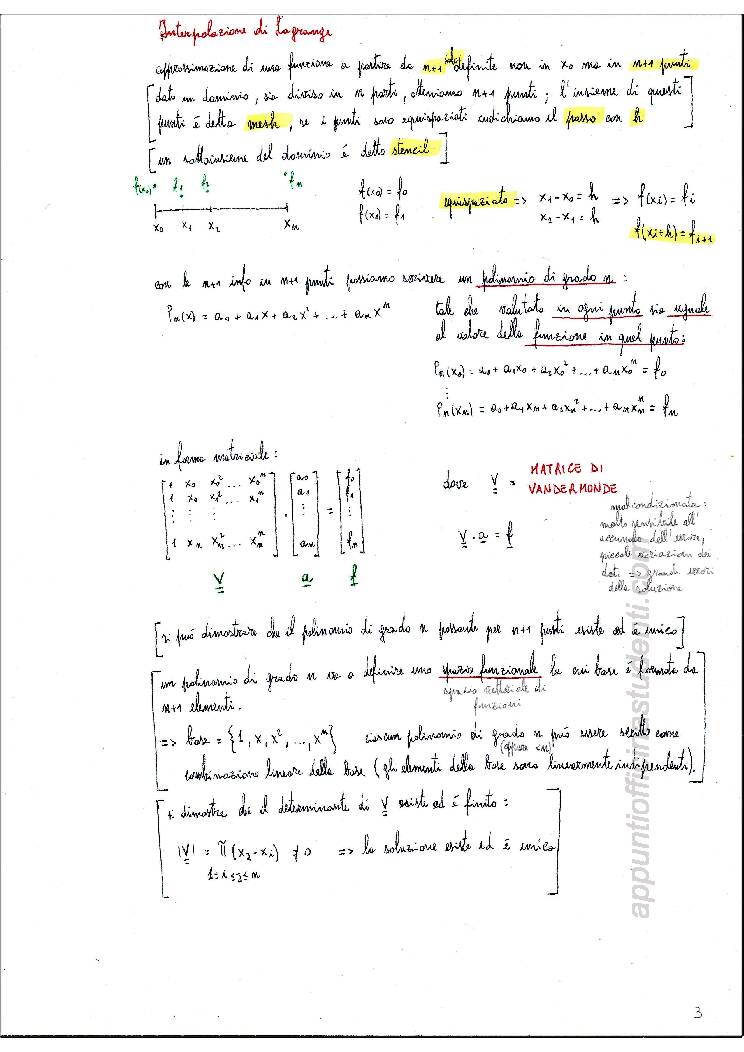 Interpolazione di Lagrange
approssimazione di una funzione a partire da n+1 info definite non in x₀ ma in n+1 punti
[dato un dominio, sia diviso in n parti, otteniamo n+1 punti; l'insieme di questi
punti è detto mesh, se i punti sono equispaziati indichiamo il passo con h]
[un sottoinsieme del dominio è detto stencil]
f(x₀) f₁ f₂ fₙ
x₀ x₁ x₂ xₙ
f(x₀) = f₀
f(x₁) = f₁
equispaziato => x₁-x₀ = h => f(xi) = fi
x₂-x₁ = h
f(xi+h) = fi+1
con le n+1 info in n+1 punti possiamo scrivere un polinomio di grado n:
Pₙ(x) = a₀ + a₁x + a₂x² + ... + aₙxⁿ
tale che valutato in ogni punto sia uguale
al valore della funzione in quel punto:
Pₙ(x₀) = a₀ + a₁x₀ + a₂x₀² + ... + aₙx₀ⁿ = f₀
⋮
Pₙ(xₙ) = a₀ + a₁xₙ + a₂xₙ² + ... + aₙxₙⁿ = fₙ
in forma matriciale:
[1 x₀ x₀² ... x₀ⁿ] [a₀] [f₀]
[1 x₁ x₁² ... x₁ⁿ] [a₁] [f₁]
[⋮ ⋮ ⋮ ⋮] · [⋮] = [⋮]
[1 xₙ xₙ² ... xₙⁿ] [aₙ] [fₙ]
V a f
dove V = MATRICE DI
VANDERMONDE
V · a = f
mal condizionata:
molto sensibile all'
accumulo dell'errore,
piccole variazioni dei
dati => grandi errori
della soluzione
[si può dimostrare che il polinomio di grado n passante per n+1 punti esiste ed è unico]
[un polinomio di grado n va a definire uno spazio funzionale la cui base è formata da
spazio vettoriale di
funzioni
n+1 elementi.
=> base = {1, x, x², ..., xⁿ} ciascun polinomio di grado n può essere scritto come
(oppure <n)
combinazione lineare della base (gli elementi della base sono linearmente indipendenti).]
[si dimostra che il determinante di V esiste ed è finito:
|V| = ∏ (xj-xi) ≠ 0 => la soluzione esiste ed è unica
1≤i≤j≤n]
appuntiofficinastudenti.com
3